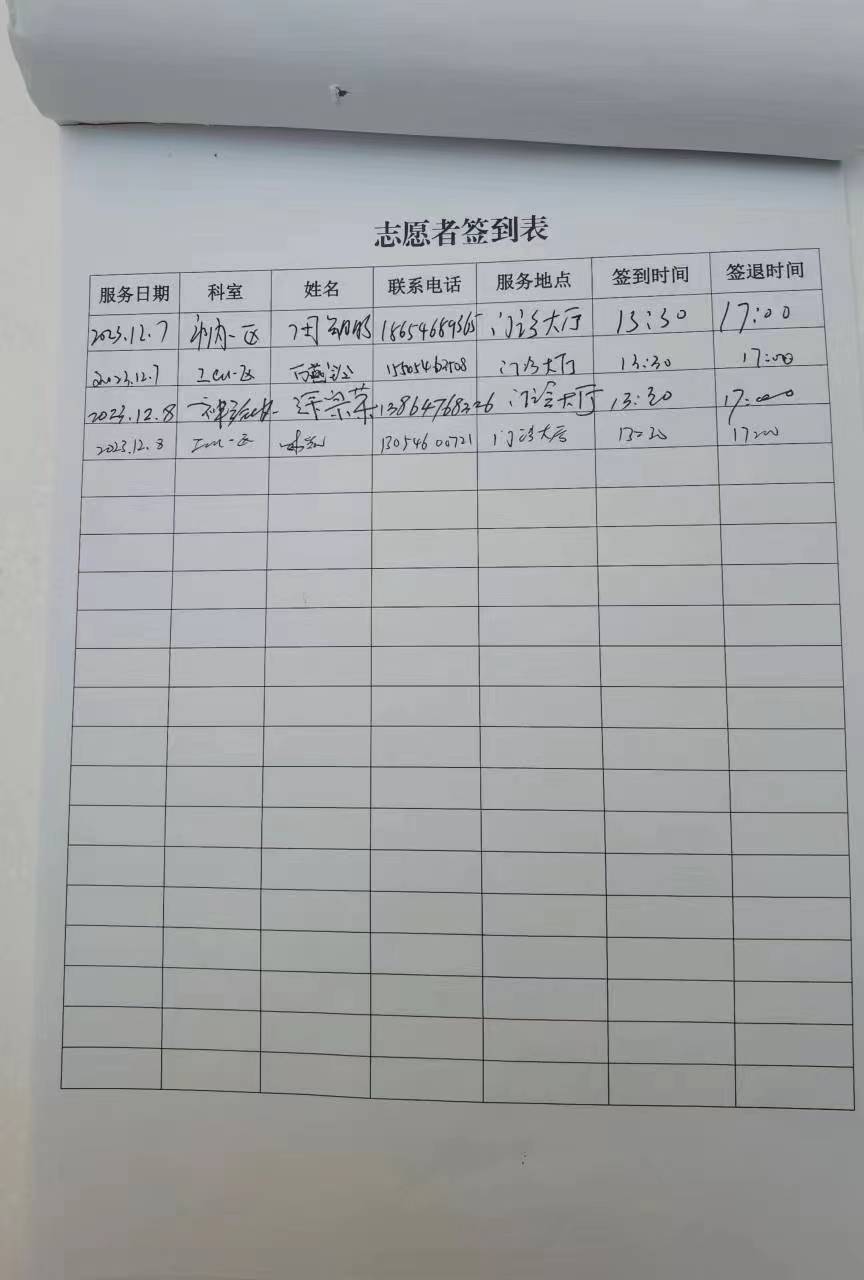 志愿者签到表
服务日期 科室 姓名 联系电话 服务地点 签到时间 签退时间
2023.12.7 一区 18654689365 门诊大厅 13:30 17:00
2023.12.7 ICU一区 门诊大厅 13:30 17:00
2023.12.8 荣 13864768226 门诊大厅 13:30 17:00
2023.12.8 ICU一区 13054600721 门诊大厅 17:00